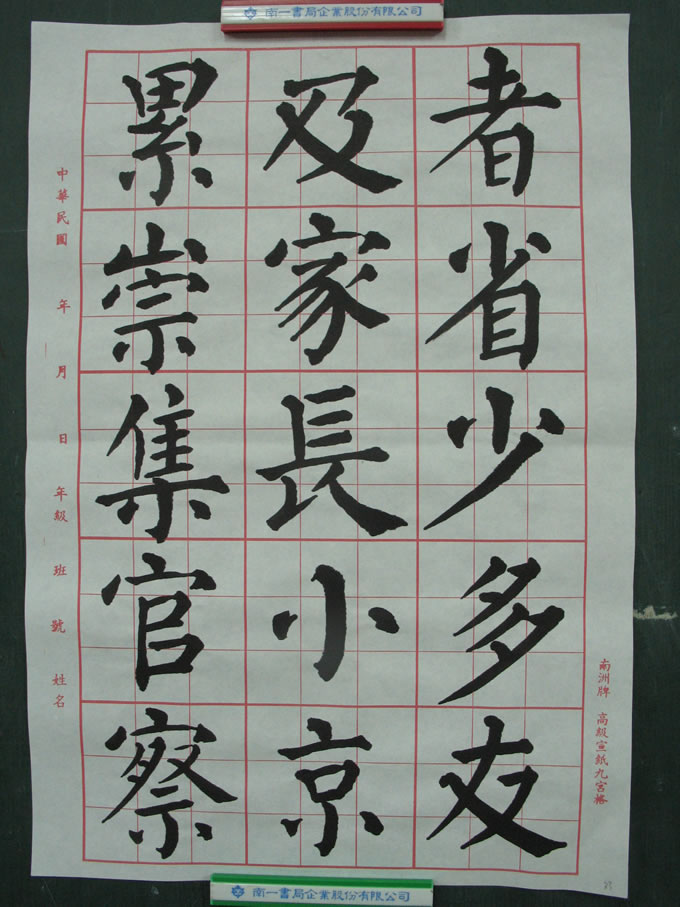 南一書局企業股份有限公司
者省少多友
及家長小京
累崇集官察
中華民國 年 月 日 年級 班 號 姓名
南洲牌 高級宣紙九宮格
南一書局企業股份有限公司